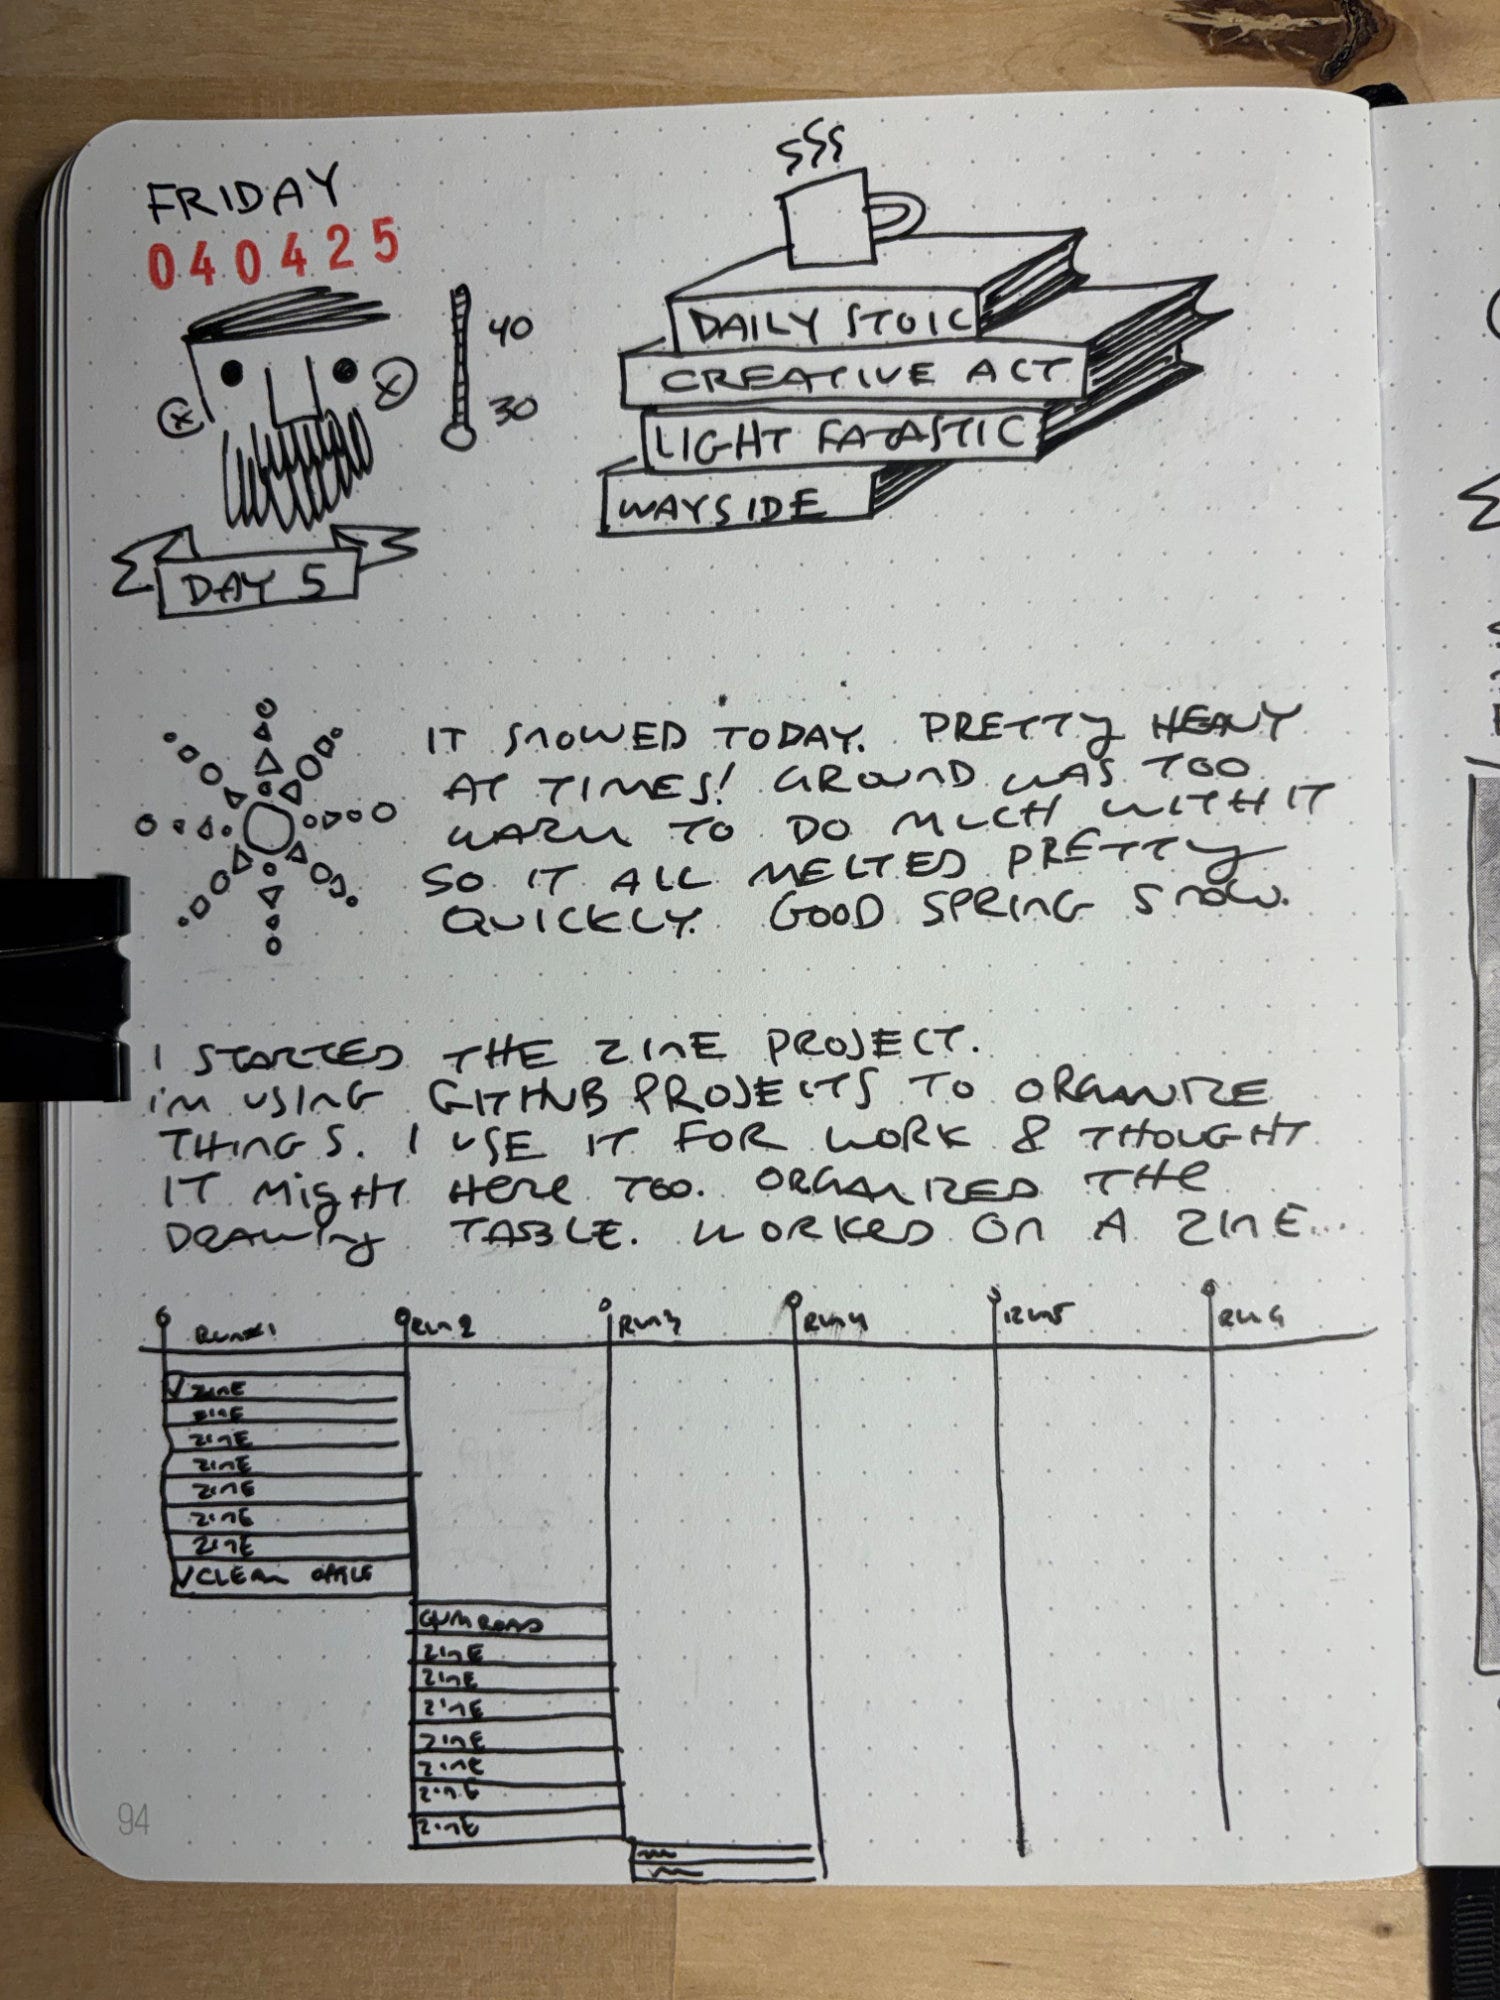 FRIDAY
040425
40
30
DAY 5
DAILY STOIC
CREATIVE ACT
LIGHT FATASTIC
WAYSIDE
IT SNOWED TODAY. PRETTY HEAVY
AT TIMES! GROUND WAS TOO
WARM TO DO MUCH WITH IT
SO IT ALL MELTED PRETTY
QUICKLY. GOOD SPRING SNOW.
I STARTED THE ZINE PROJECT.
I'M USING GITHUB PROJECTS TO ORGANIZE
THINGS. I USE IT FOR WORK & THOUGHT
IT MIGHT HERE TOO. ORGANIZED THE
DRAWING TABLE. WORKED ON A ZINE...
RUN 2
RUN 3
RUN 4
RUN 5
ZINE
ZINE
ZINE
ZINE
ZINE
ZINE
ZINE
CLEAN OFFICE
GUMROAD
ZINE
ZINE
ZINE
ZINE
ZINE
ZINE
ZINE
94